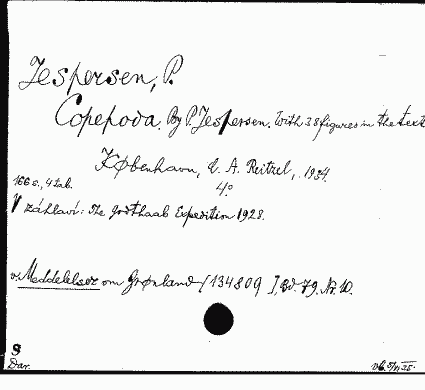 Jespersen, P.
Copepoda. By P. Jespersen. With 38 figures in the text
København, C. A. Reitzel, 1934.
166 s., 4 tab. 4°
V záhlaví: The Godthaab Expedition 1928.
v. Meddelelser om Grønland [134809], Bd. 79. Nr. 10.
S
Dar.